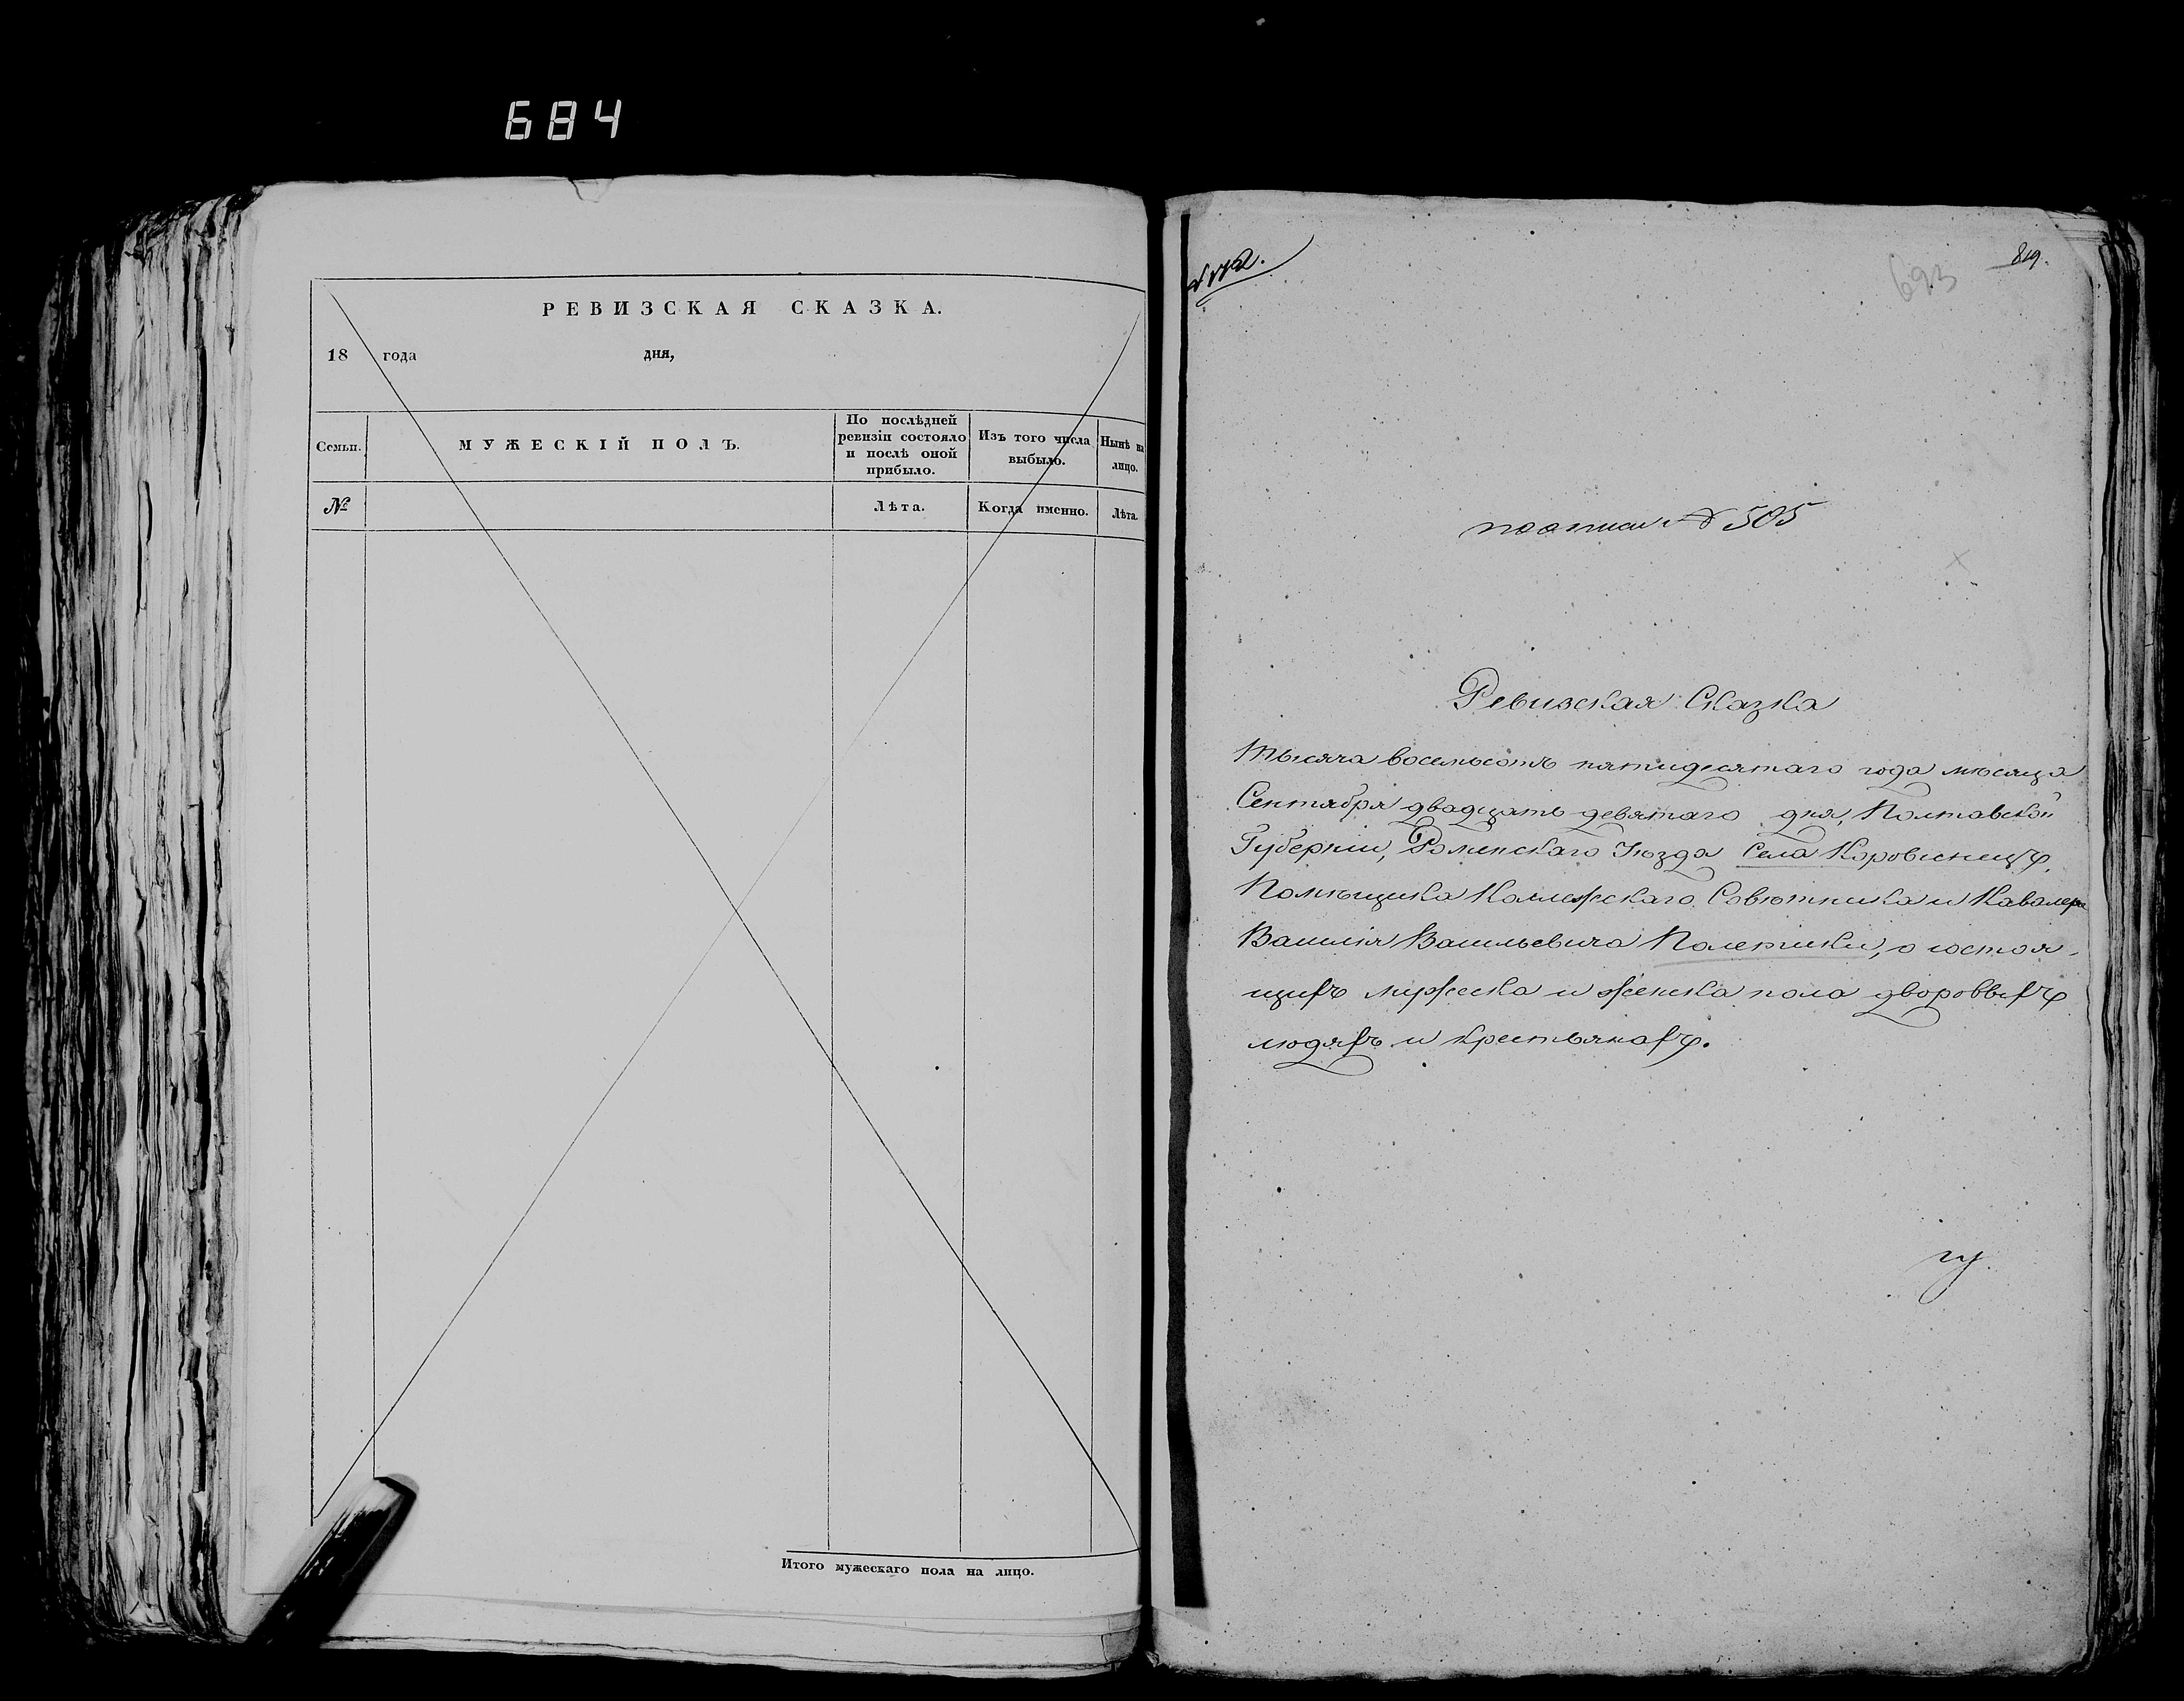 684
РЕВИЗСКАЯ СКАЗКА.
18 года дня,
Семьи.
МУЖЕСКІЙ ПОЛЪ.
По послѣдней
ревизіи состояло
и послѣ оной
прибыло.
Изъ того числа
выбыло.
Нынѣ на
лицо.
№
Лѣта.
Когда именно.
Лѣта.
Итого мужескаго пола на лицо.
693
819.
по описи № 505
Ревизская Сказка
Тысяча восемьсотъ пятидесятаго года мѣсяца
Сентября двадцать девятаго дня, Полтавской
Губерніи, Роменскаго Уѣзда Села Коровинецъ,
Помѣщика Коллежскаго Совѣтника и Кавалера
Василія Васильевича Полетики, о состоя-
щихъ мужеска и женска пола дворовыхъ
людяхъ и крестьянахъ.